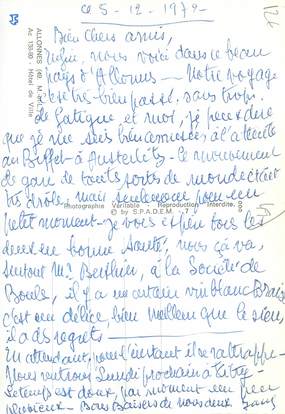 ce 5-12-1972
Bien chers amis,
nous voici dans ce beau
pays d'Allonnes - Notre voyage
s'est très bien passé, sans trop
de fatigue et moi, je peux dire
que je me suis bien amusée, à l'attente
au Buffet à Austerlitz - le mouvement
de gare de toutes sortes de monde c'était
très drôle, mais seulement pour un
petit moment - je vous espère tous les
deux en bonne santé, nous ça va,
surtout Mr Berthier, à la Société de
Boule, il y a un certain vin blanc
c'est un délice, bien meilleur que le sien,
il a des regrets
En attendant, pour l'instant il se rattrape -
Nous rentrons Lundi prochain à
Le temps est doux, par moment un peu
pluvieux - Bons Baisers de nous deux
ALLONNES (49 M.-et-L.)
Hôtel de Ville
Photographie Véritable - Reproduction Interdite.
© by S.P.A.D.E.M.